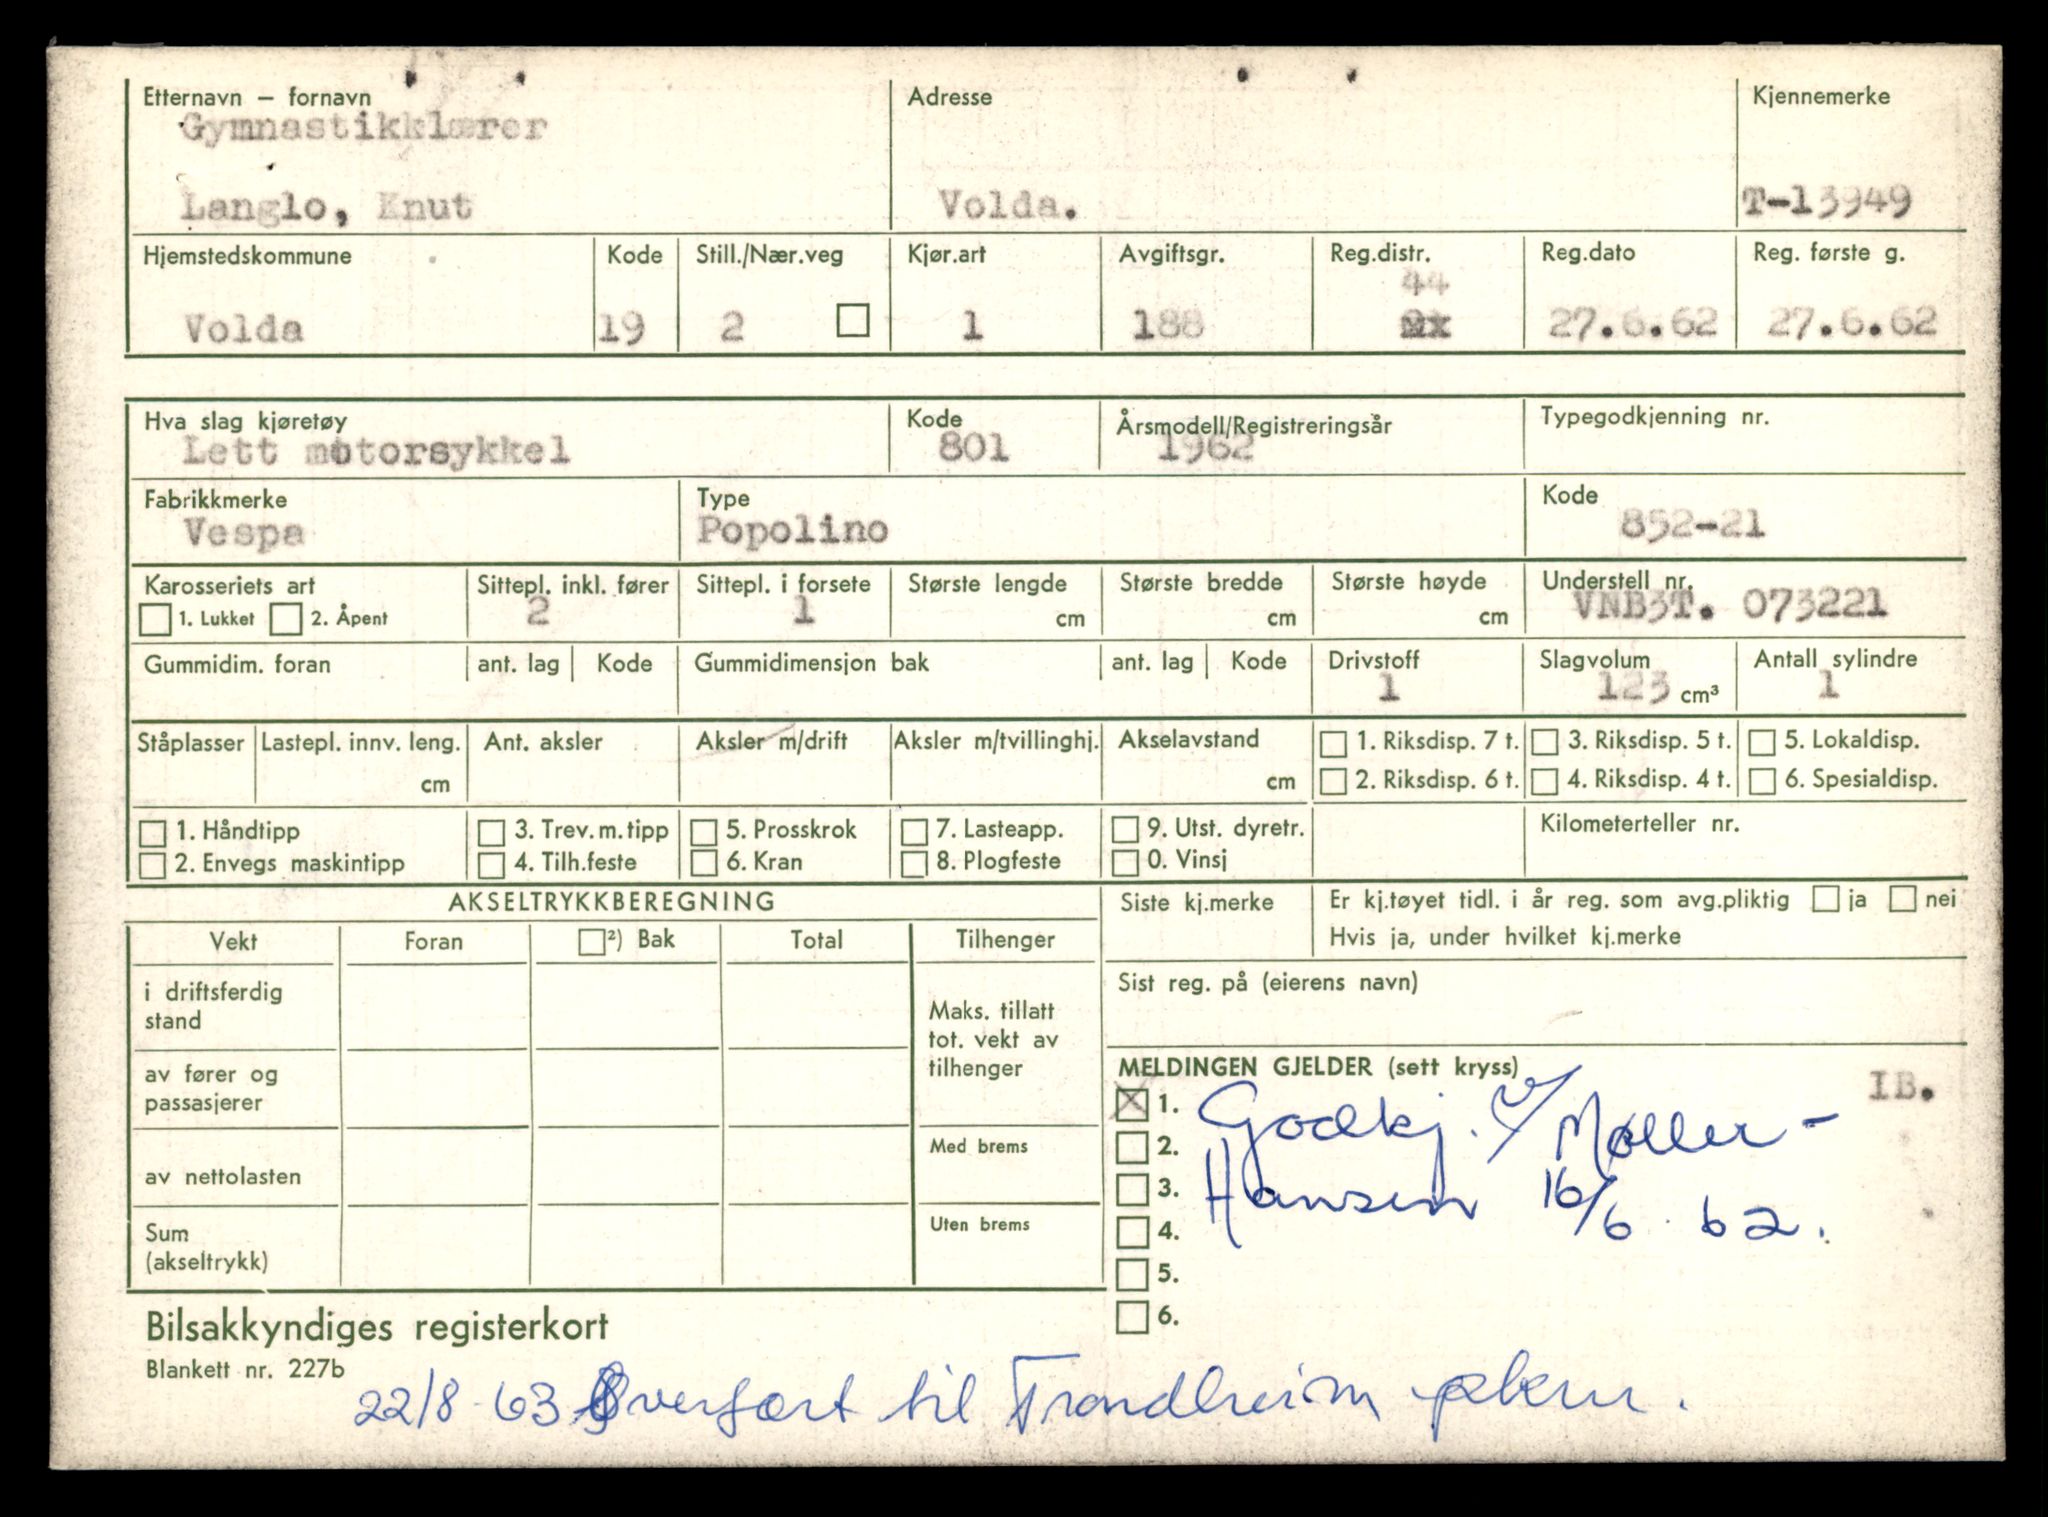 Etternavn – fornavn Adresse Kjennemerke
Gymnastikklærer
Langlo, Knut Volda. T-13949
Hjemstedskommune Kode Still./Nær.veg Kjør.art Avgiftsgr. Reg.distr. Reg.dato Reg. første g.
44
Volda 19 2 1 188 27.6.62 27.6.62
Hva slag kjøretøy Kode Årsmodell/Registreringsår Typegodkjenning nr.
Lett motorsykkel 801 1962
Fabrikkmerke Type Kode
Vespa Popolino 852-21
Karosseriets art Sittepl. inkl. fører Sittepl. i forsete Største lengde Største bredde Største høyde Understell nr.
1. Lukket 2. Åpent 2 1 cm cm cm VNB3T. 073221
Gummidim. foran ant. lag Kode Gummidimensjon bak ant. lag Kode Drivstoff Slagvolum Antall sylindre
1 123 cm³ 1
Ståplasser Lastepl. innv. leng. Ant. aksler Aksler m/drift Aksler m/tvillinghj. Akselavstand 1. Riksdisp. 7 t. 3. Riksdisp. 5 t. 5. Lokaldisp.
cm cm 2. Riksdisp. 6 t. 4. Riksdisp. 4 t. 6. Spesialdisp.
1. Håndtipp 3. Trev. m. tipp 5. Prosskrok 7. Lasteapp. 9. Utst. dyretr. Kilometerteller nr.
2. Envegs maskintipp 4. Tilh.feste 6. Kran 8. Plogfeste 0. Vinsj
AKSELTRYKKBEREGNING Siste kj.merke Er kj.tøyet tidl. i år reg. som avg.pliktig ja nei
Hvis ja, under hvilket kj.merke
Vekt Foran ²) Bak Total Tilhenger
Sist reg. på (eierens navn)
i driftsferdig
stand
Maks. tillatt
tot. vekt av
tilhenger
MELDINGEN GJELDER (sett kryss)
av fører og
passasjerer
IB.
X 1. Godkj. v/ Møller-
2.
Med brems
av nettolasten
3. Hansen 16/6 62.
4.
Uten brems
Sum
(akseltrykk)
5.
6.
Bilsakkyndiges registerkort
Blankett nr. 227b
22/8-63 Overført til Trondheim